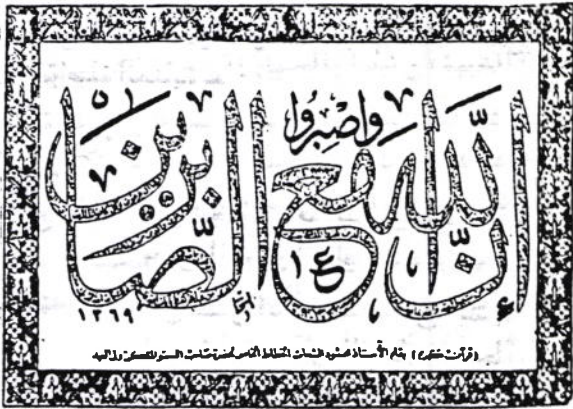 واصبروا
إن الله مع الصابرين
١٣٦٩
(قرآن كريم) بقلم الأستاذ محمود الشحات الخطاط الخاص لحضرة صاحب السمو الملكى ولى العهد